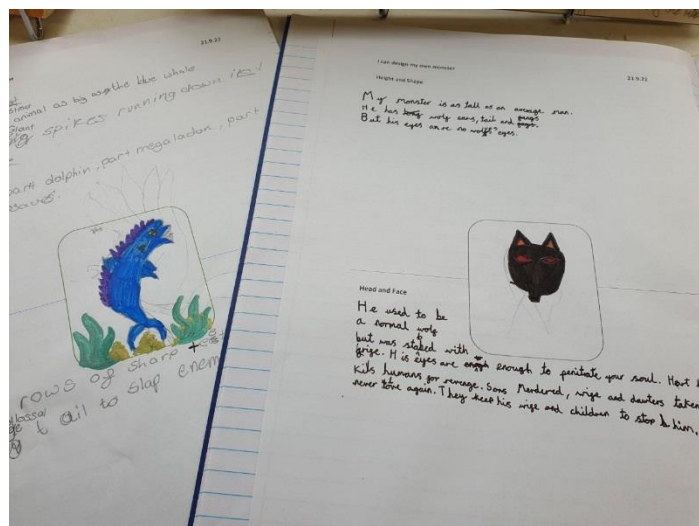 21.9.21
animal as by as the blue whale
spikes running down its
part dolphin, part megaladon, part
rows of sharp
tail to slap enem
I can design my own monster
21.9.21
Height and Shape
My monster is as tall as an average man.
He has wolf ears, tail and
But his eyes are no wolfs eyes.
Head and Face
He used to be
a normal wolf
but was staked with
grige. His eyes are enough to penitrate your soul. Hert
kills humans for revenge. Sons Merdered, wige and dauters taken
never tove again. They keep his wige and children to stop him.